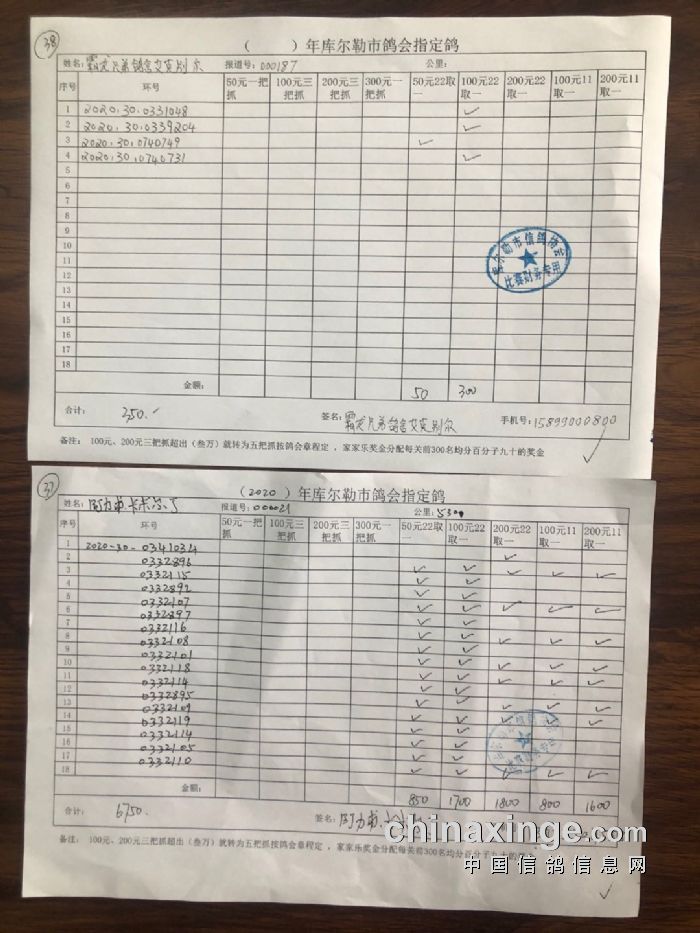 38
（　　）年库尔勒市鸽会指定鸽
姓名： 报道号：000187 公里：
序号 环号 50元一把抓 100元三把抓 200元三把抓 300元一把抓 50元22取一 100元22取一 200元22取一 100元11取一 200元11取一
1 2020.30.0331048 ✓
2 2020.30.0339204 ✓
3 2020.30.0740749 ✓
4 2020.30.0740731 ✓
5
6
7
8
9
10
11
12
13
14
15
16
17
18
库尔勒市信鸽协会
比赛财务专用
金额： 50 300
合计： 350.- 签名： 手机号：15899000800
备注： 100元、200元三把抓超出（叁万）就转为五把抓按鸽会章程定，家家乐奖金分配每关前300名均分百分子九十的奖金
37
（2020）年库尔勒市鸽会指定鸽
姓名： 报道号：000021 公里：
序号 环号 50元一把抓 100元三把抓 200元三把抓 300元一把抓 50元22取一 100元22取一 200元22取一 100元11取一 200元11取一
1 2020-30-0341034
2 0332896 ✓
3 0332115 ✓ ✓ ✓ ✓ ✓
4 0332892 ✓ ✓
5 0332107 ✓ ✓
6 0332897 ✓ ✓ ✓ ✓ ✓
7 0332116 ✓ ✓
8 0332108 ✓ ✓ ✓ ✓ ✓
9 0332101 ✓ ✓
10 0332118 ✓ ✓ ✓ ✓ ✓
11 0332114 ✓ ✓ ✓ ✓ ✓
12 0332895 ✓ ✓
13 0332109 ✓ ✓ ✓ ✓ ✓
14 0332119 ✓ ✓ ✓ ✓ ✓
15 0332114 ✓ ✓
16 0332105 ✓ ✓
17 0332110 ✓ ✓
18 ✓ ✓ ✓ ✓ ✓
金额： 850 1700 1800 800 1600
合计： 6750. 签名：
备注： 100元、200元三把抓超出（叁万）就转为五把抓按鸽会章程定，家家乐奖金分配每关前300名均分百分子九十的
chinaxinge.com
中国信鸽信息网